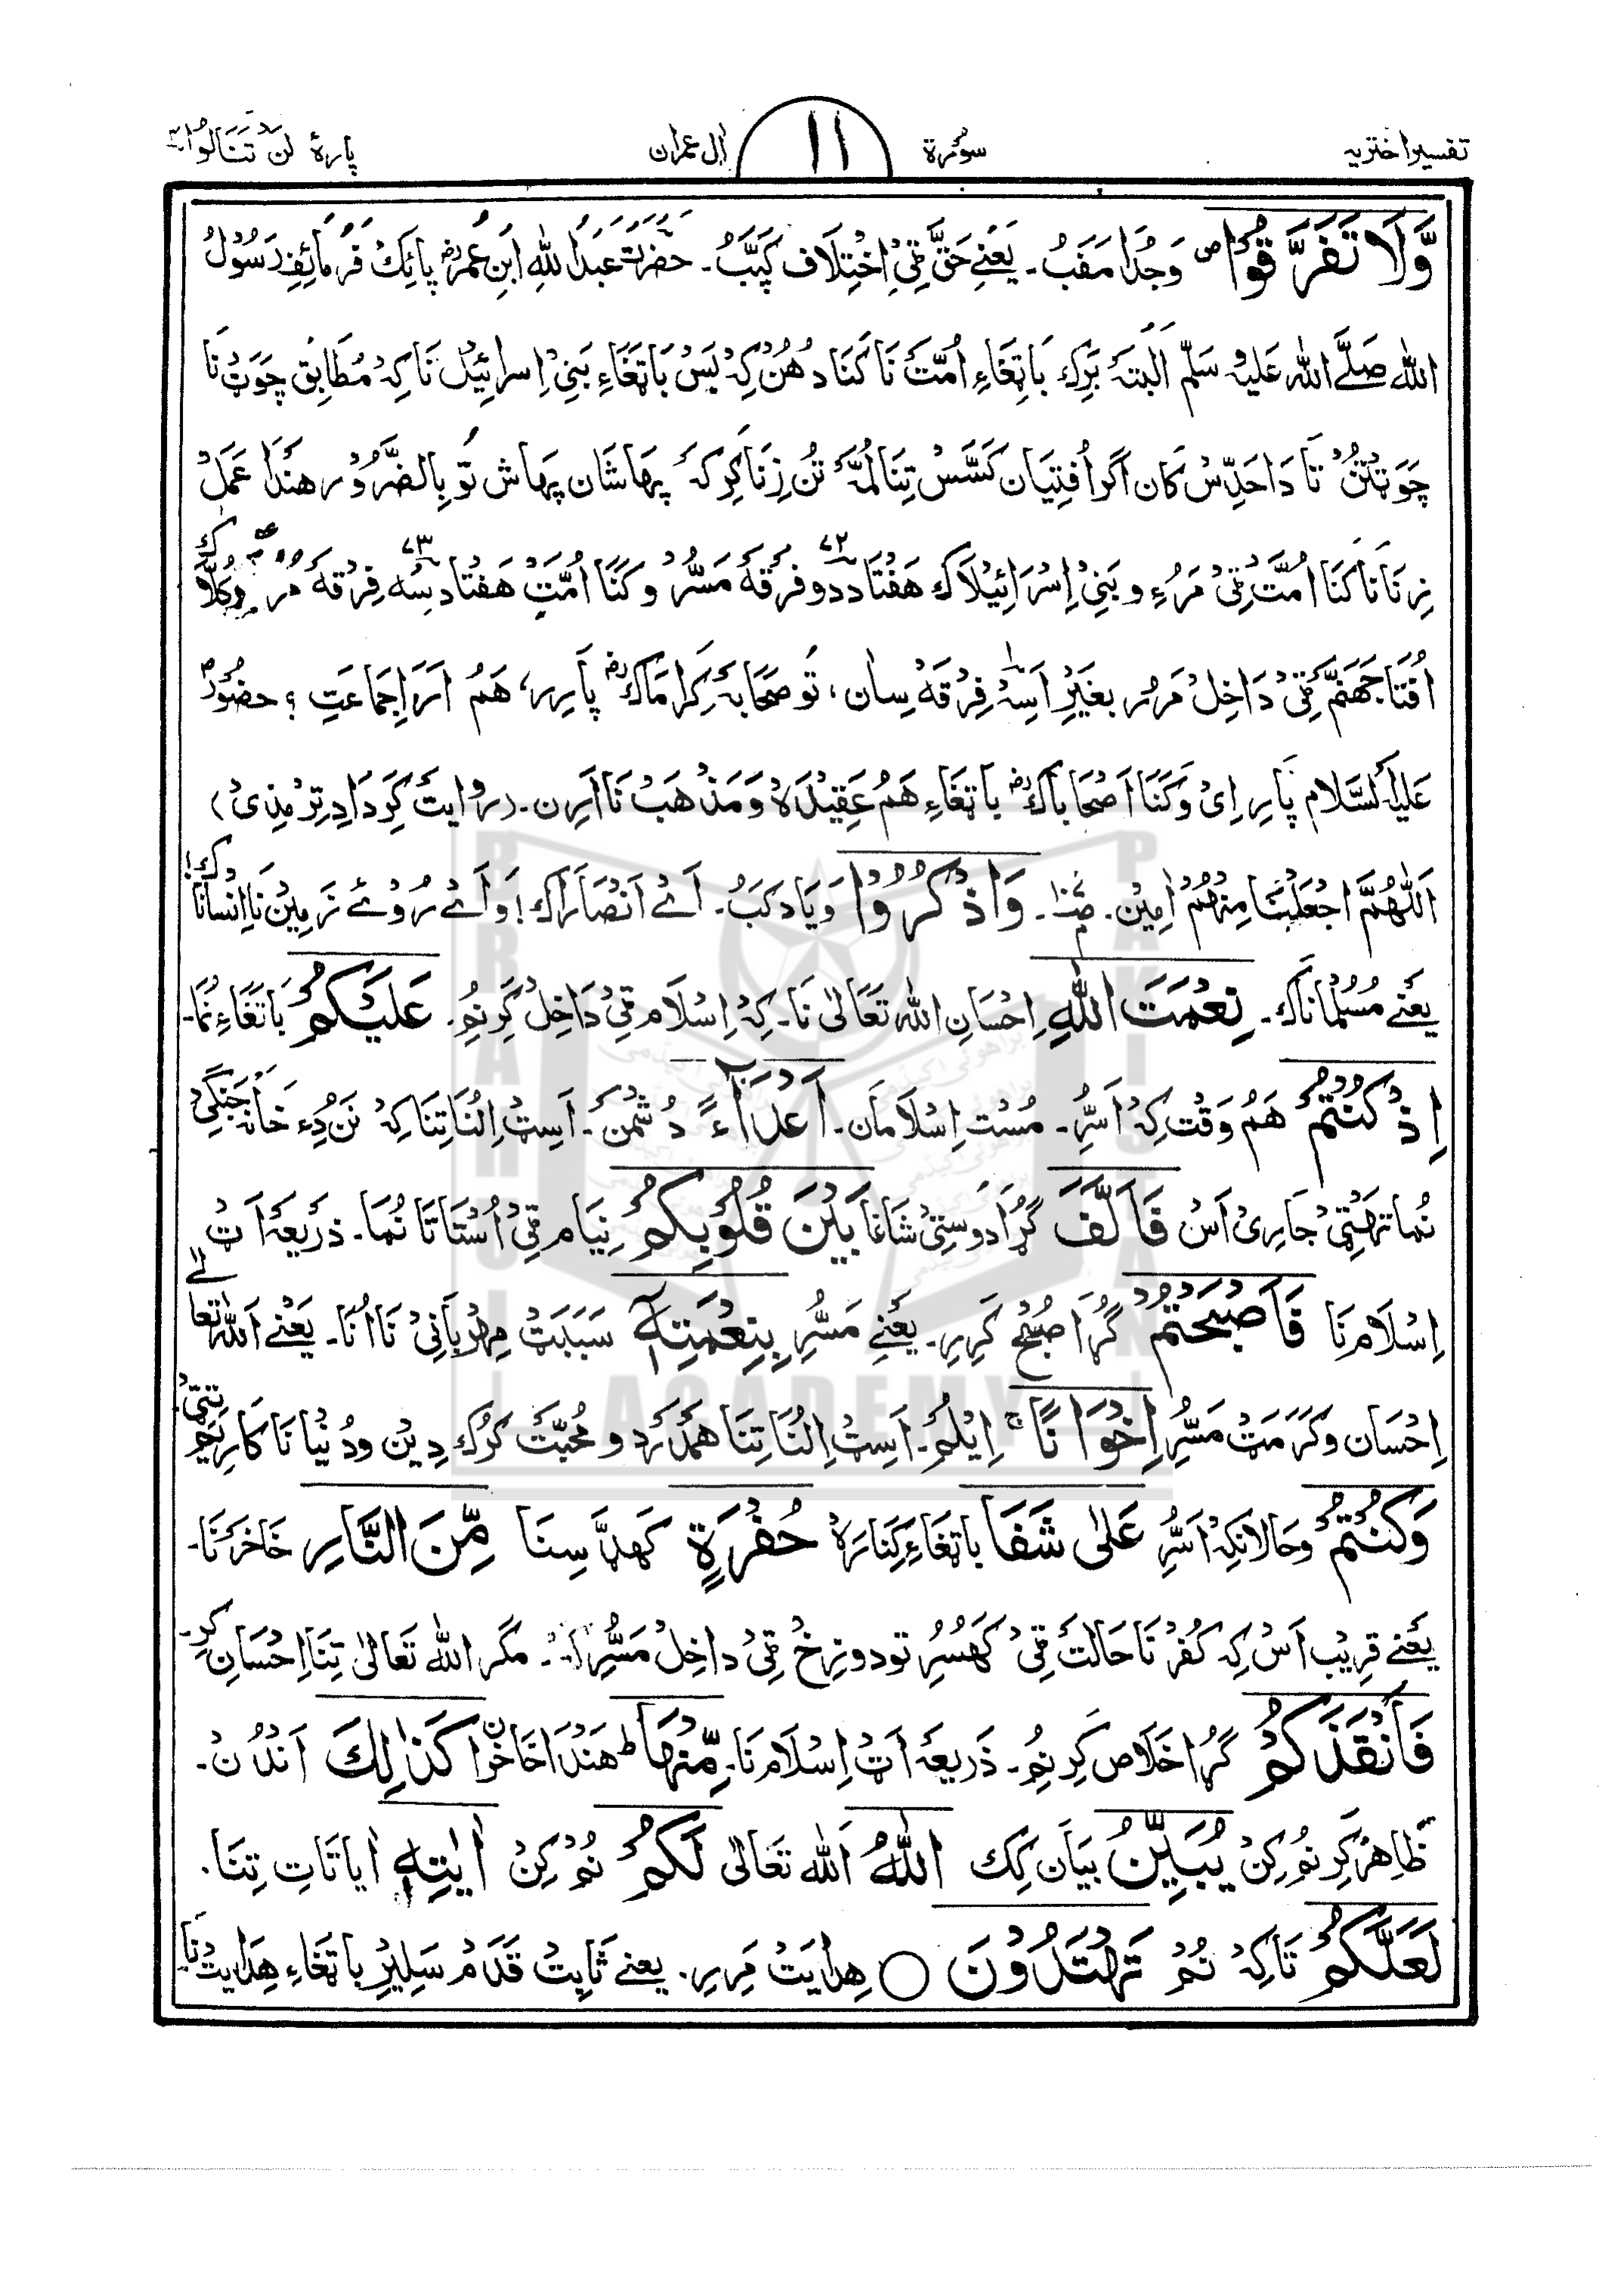 تفسیر اختریہ
سورۃ
۱۱
اٰل عمران
پارۂ لَنْ تَنَالُوا ۴
وَّلَا تَفَرَّقُوْا ص وَجُدَا مَفَبُ۔ یَعْنِے حَقَّ ٹِی اِخْتِلَاف کَپَّبُ۔ حضرت عبدُاللّٰہِ ابنِ عُمرؓ پائِکْ فَرمائِفِ رَسُوْلُ
اللّٰہ صَلَّے اللّٰہ عَلیہْ سَلَّمْ اَلْبَتَہ بَرِکْ بَاتِغَاءِ اُمَّتْ نَا کَنَا دُھُنْ کِہ بَسْ بَاتِغَاءِ بَنِیْ اِسرائِیْل نَا کِہ مُطَابِق چَوَٹْ نَا
چَوَٹَتُنْ تَا دَاحَدِّسْ کَان اَگر اُفْتِیَان کَسَّسْ تِنَا لُمَّہ تُنْ زِنَا کِرکہ پہَاشَان پہَاش تَو بِالضَّرُوْر ھَنْدَا عَمَلْ
زِنَانَا کَنَا اُمَّتْ ٹِیْ مَرُءِ و بَنِیْ اِسْرَائِیْلَاکْ ھَفْتَاد دو فرقہ ۷۲ مَسُّرْ و کَنَا اُمَّتْ ھَفْتَاد سِہ فِرْقہ ۷۳ مُرْ و کُلّ
اُفْتَا جَھَنَّمْ ٹِیْ دَاخِلْ مَرُر بغَیْرِ اَسِہْ فِرْقہ سِان، تَو صَحَابہ کِرَامَاکؓ پَارِر، ھَمُ اَرَا جِمَاعَتِ؟ حضُوْر
عَلَیہِ السَّلام پَارِ اِیْ وَ کَنَا اَصْحَابَاکؓ بَاتِغَاءِ ھَمُ عَقِیْدَہْ وَ مَذْھَبْ نَا اَرِن۔ (روایتْ کَرِ دَادِ تِرْمِذِیْ)
اَللّٰھُمَّ اجْعَلْنَا مِنْھُمْ اٰمِیْن۔ وَاذْكُرُوْا وَ یَاد کَبُ۔ اَےْ اَنْصَارَاکْ! وَ اَےْ رُوْئے زَمِیْنْ نَا اِنسانَاکْ!
یعنے مُسلمانَاکْ۔ نِعْمَتَ اللّٰهِ اِحْسَانِ اللّٰہ تَعَالٰی نَا۔ کِہْ اِسْلَام ٹِیْ دَاخِلْ کَرِ نُمِ۔ عَلَيْكُمْ بَاتِغَاءِ نُمَا۔
اِذْ كُنْتُمْ ھَمُ وَقْت کِہْ اَسُّرِ۔ مُسْت اِسْلَامَان۔ اَعْدَآءً دُشْمَنْ۔ اَسِٹْ اِلْنَا تِنَا کِہْ نَن دِے خَانہ جَنْگِیْ
نُمَا تَہْٹِیْ جَارِیْ اَسْ فَاَلَّفَ گُڑَا دوسْتِیْ شَاغَا بَيْنَ قُلُوْبِكُمْ نِیَام ٹِیْ اُسْتَاتَا نُمَا۔ ذَرِیعہ اَٹْ
اِسْلَام نَا فَاَصْبَحْتُمْ گُڑَا صُبْحْ کَرِیرِ۔ یَعْنِے مَسُّرِ بِنِعْمَتِهٖٓ سَبَبَٹْ مِہْرْبَانِیْ نَا اُنَا۔ یَعْنِے اللّٰہ تَعَالٰے
اِحْسَان وَ کَرَمَٹْ مَسُّرِ اِخْوَانًا ج اِیْلُمْ۔ اَسِٹْ اِلْنَا تِنَا ھَمْدَرْد و مُحَبَّتْ کَرُکْ دِیْن و دُنْیَا نَا کَارِیم تیٹیْ
وَكُنْتُمْ وَحَالَانکِہْ اَسُّرِ عَلٰى شَفَا بَاتِغَاءِ کِنَارَہْ حُفْرَةٍ کَھڈَّ سِنَا مِّنَ النَّارِ خَاخَرْ نَا۔
یَعْنے قَرِیْب اَسْ کِہ کُفْر نَا حَالَتْ ٹِیْ کَھْسُرِ تو دوزِخْ ٹِیْ داخِلْ مَسُّرِ۔ مگر اللّٰہ تَعَالٰی تِنَا اِحْسَان کَرِ۔
فَاَنْقَذَكُمْ گُڑَا خَلَاص کَرِ نُمِ۔ ذَرِیعہ اَٹْ اِسْلَام نَا۔ مِّنْهَا ط ھَنْدَا خَاخَرْان كَذٰلِكَ اَنْدُنْ۔
ظَاھِرْ کَرِ نُمْ کِنْ يُبَيِّنُ بَیَان کِکْ اللّٰهُ اللّٰہ تَعَالٰی لَكُمْ نُمْ کِنْ اٰيٰتِهٖ اٰیاتَاتِ تِنَا۔
لَعَلَّكُمْ تَاکِہْ نُمْ تَهْتَدُوْنَ ○ ھِدَایَتْ مَرِیرِ۔ یعنے ثَابِتْ قَدَمْ سَلِیْرِ بَاتِغَاءِ ھِدَایتْ نَا۔
BRAHUI
ACADEMY
PAKISTAN